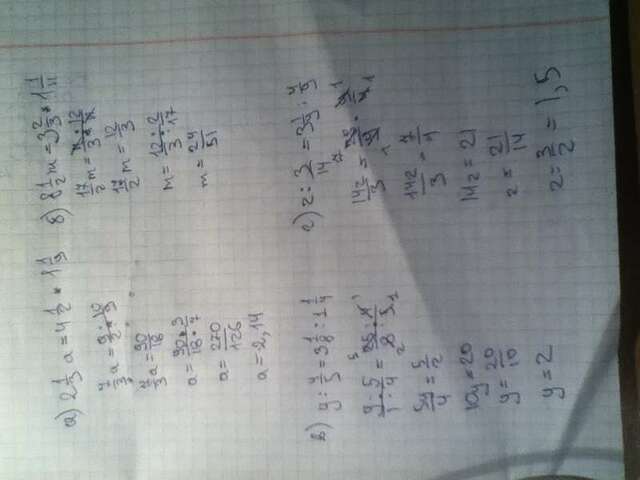 а) 2 1/3 a = 4 1/2 · 1 1/9
7/3 a = 9/2 · 10/9
7/3 a = 90/18
a = 90/18 · 3/7
a = 270/126
a = 2,14
б) 8 1/2 m = 3 2/3 · 1 1/11
17/2 m = 11/3 · 12/11
17/2 m = 12/3
m = 12/3 · 2/17
m = 24/51
в) y : 4/5 = 3 1/8 : 1 1/4
y/1 · 5/4 = 25/8 · 4/5
5y/4 = 5/2
10y = 20
y = 20/10
y = 2
г) z : 3/14 = 3 1/9 : 4/9
14z/3 = 28/9 · 9/4
14z/3 = 7/1
14z = 21
z = 21/14
z = 3/2 = 1,5